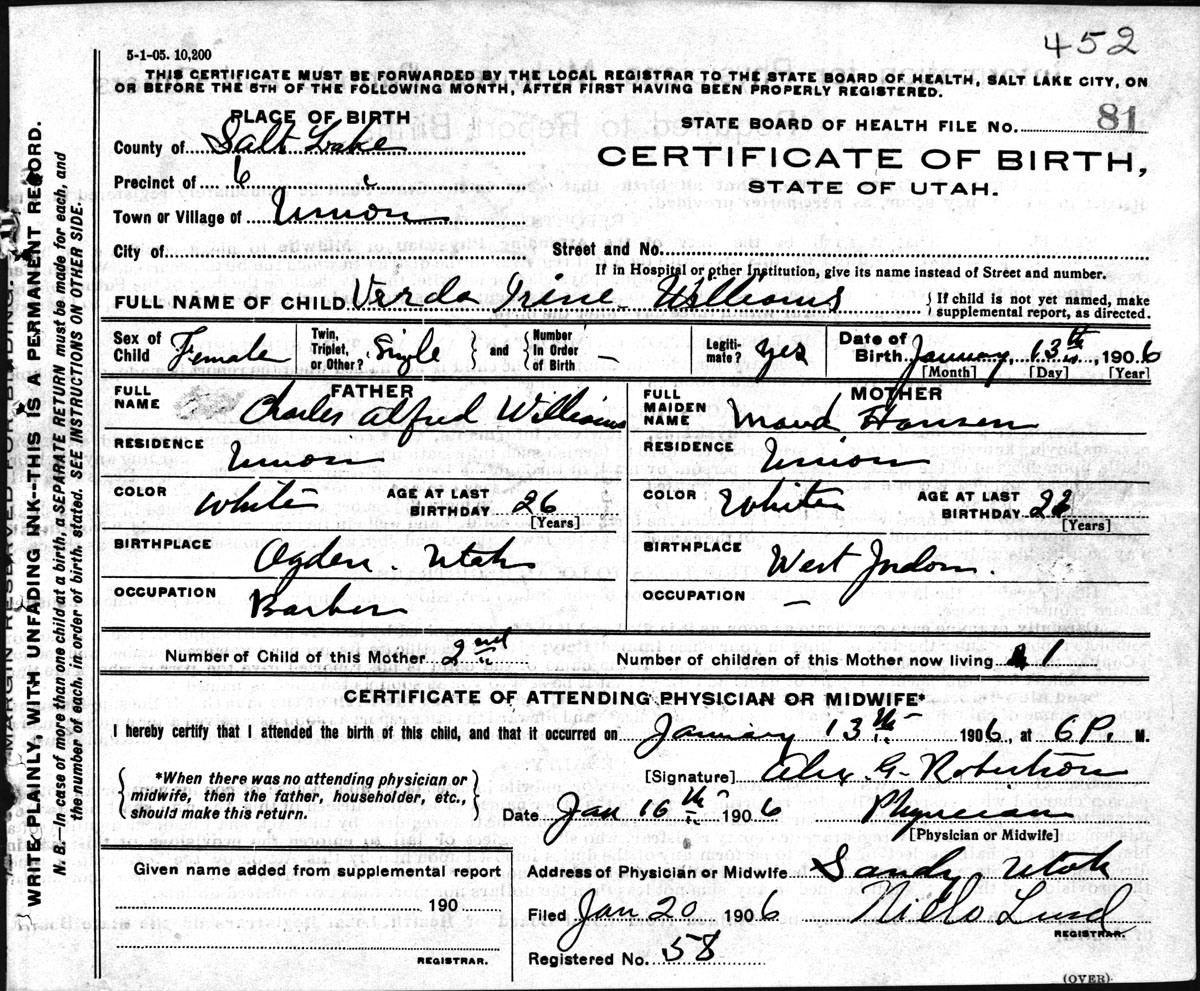 452
5-1-05. 10,200
THIS CERTIFICATE MUST BE FORWARDED BY THE LOCAL REGISTRAR TO THE STATE BOARD OF HEALTH, SALT LAKE CITY, ON
OR BEFORE THE 5TH OF THE FOLLOWING MONTH, AFTER FIRST HAVING BEEN PROPERLY REGISTERED.
PLACE OF BIRTH
STATE BOARD OF HEALTH FILE NO. 81
County of Salt Lake
CERTIFICATE OF BIRTH,
Precinct of 6
STATE OF UTAH.
Town or Village of Union
City of Street and No.
If in Hospital or other Institution, give its name instead of Street and number.
FULL NAME OF CHILD Verda Irine Williams { If child is not yet named, make
supplemental report, as directed.
Sex of Child Female Twin, Triplet, or Other? Single } and { Number in Order of Birth – Legiti- mate? yes Date of Birth January 13th, 1906
[Month] [Day] [Year]
FATHER
FULL NAME Charles Alfred Williams
RESIDENCE Union
COLOR White AGE AT LAST BIRTHDAY 26
[Years]
BIRTHPLACE
Ogden Utah
OCCUPATION
Barber
MOTHER
FULL MAIDEN NAME Maud Hansen
RESIDENCE Union
COLOR White AGE AT LAST BIRTHDAY
[Years]
BIRTHPLACE
West Jordon.
OCCUPATION –
Number of Child of this Mother 2nd Number of children of this Mother now living 1
CERTIFICATE OF ATTENDING PHYSICIAN OR MIDWIFE*
I hereby certify that I attended the birth of this child, and that it occurred on January 13th 1906, at 6 P. M.
{ *When there was no attending physician or
midwife, then the father, householder, etc.,
should make this return. }
[Signature] Alex. G. Robertson
Date Jan 16th 1906 Physician
[Physician or Midwife]
Given name added from supplemental report
190
REGISTRAR.
Address of Physician or Midwife Sandy Utah
Filed Jan 20 1906 Niels Lind
REGISTRAR.
Registered No. 58
(OVER)
MARGIN RESERVED FOR BINDING.
WRITE PLAINLY, WITH UNFADING INK—THIS IS A PERMANENT RECORD.
N. B.—In case of more than one child at a birth, a SEPARATE RETURN must be made for each, and
the number of each, in order of birth, stated. SEE INSTRUCTIONS ON OTHER SIDE.